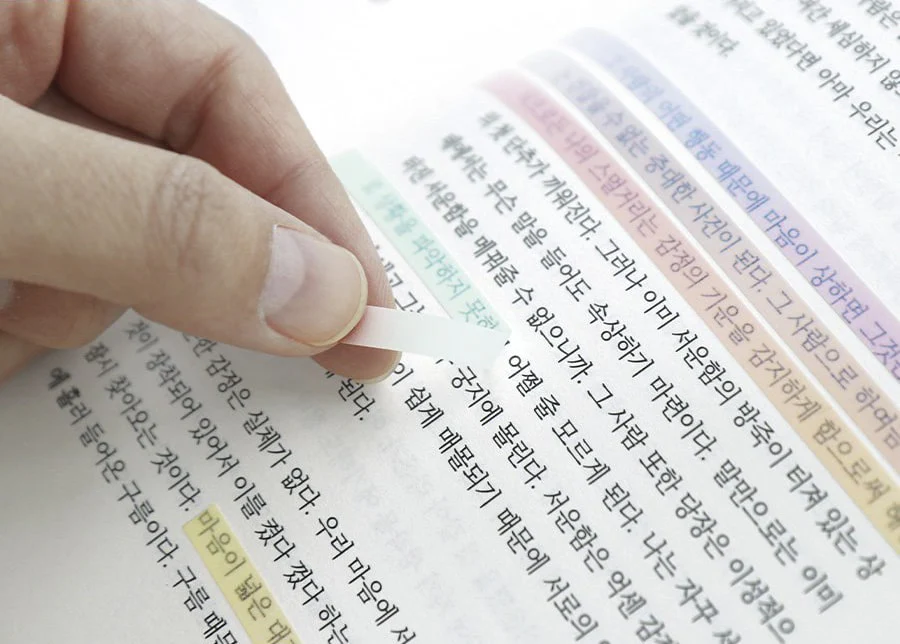 세심하지 않
있었다면 아마 우리는
을 것이다.
어떤 행동 때문에 마음이 상하면 그것
수 없는 중대한 사건이 된다. 그 사람으로 하여금
나의 스멀거리는 감정의 기운을 감지하게 함으로써
의 첫 단추가 끼워진다. 그러나 이미 서운함의 방죽이 터져 있는 상
태에서는 무슨 말을 들어도 속상하기 마련이다. 말만으로는 이미
버린 서운함을 메꿔줄 수 없으니까. 그 사람 또한 당장은 이성적으
로 상황을 파악하지 못하 어쩔 줄 모르게 된다. 나는 자꾸
궁지에 몰린다. 서운함은 억센 감
이 쉽게 매몰되기 때문에 서로의
된다.
한 감정은 실체가 없다. 우리 마음에 서
것이 장착되어 있어서 이를 켰다 껐다 하는
잠시 찾아오는 것이다. 마음이 넓은 대
에 흘러 들어온 구름이다. 구름 때문